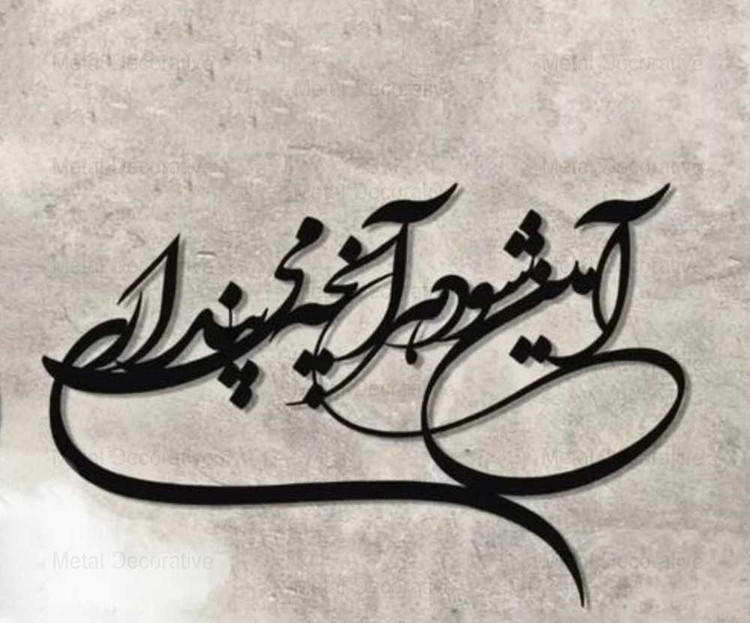 Metal Decorative Metal Decorative
Metal Decorative
Metal Decorative Metal Decorative
Metal Decorative
شود هر آنچه می پنداری
Metal Decorative Metal Decorative
Metal Decorative Metal Decorative